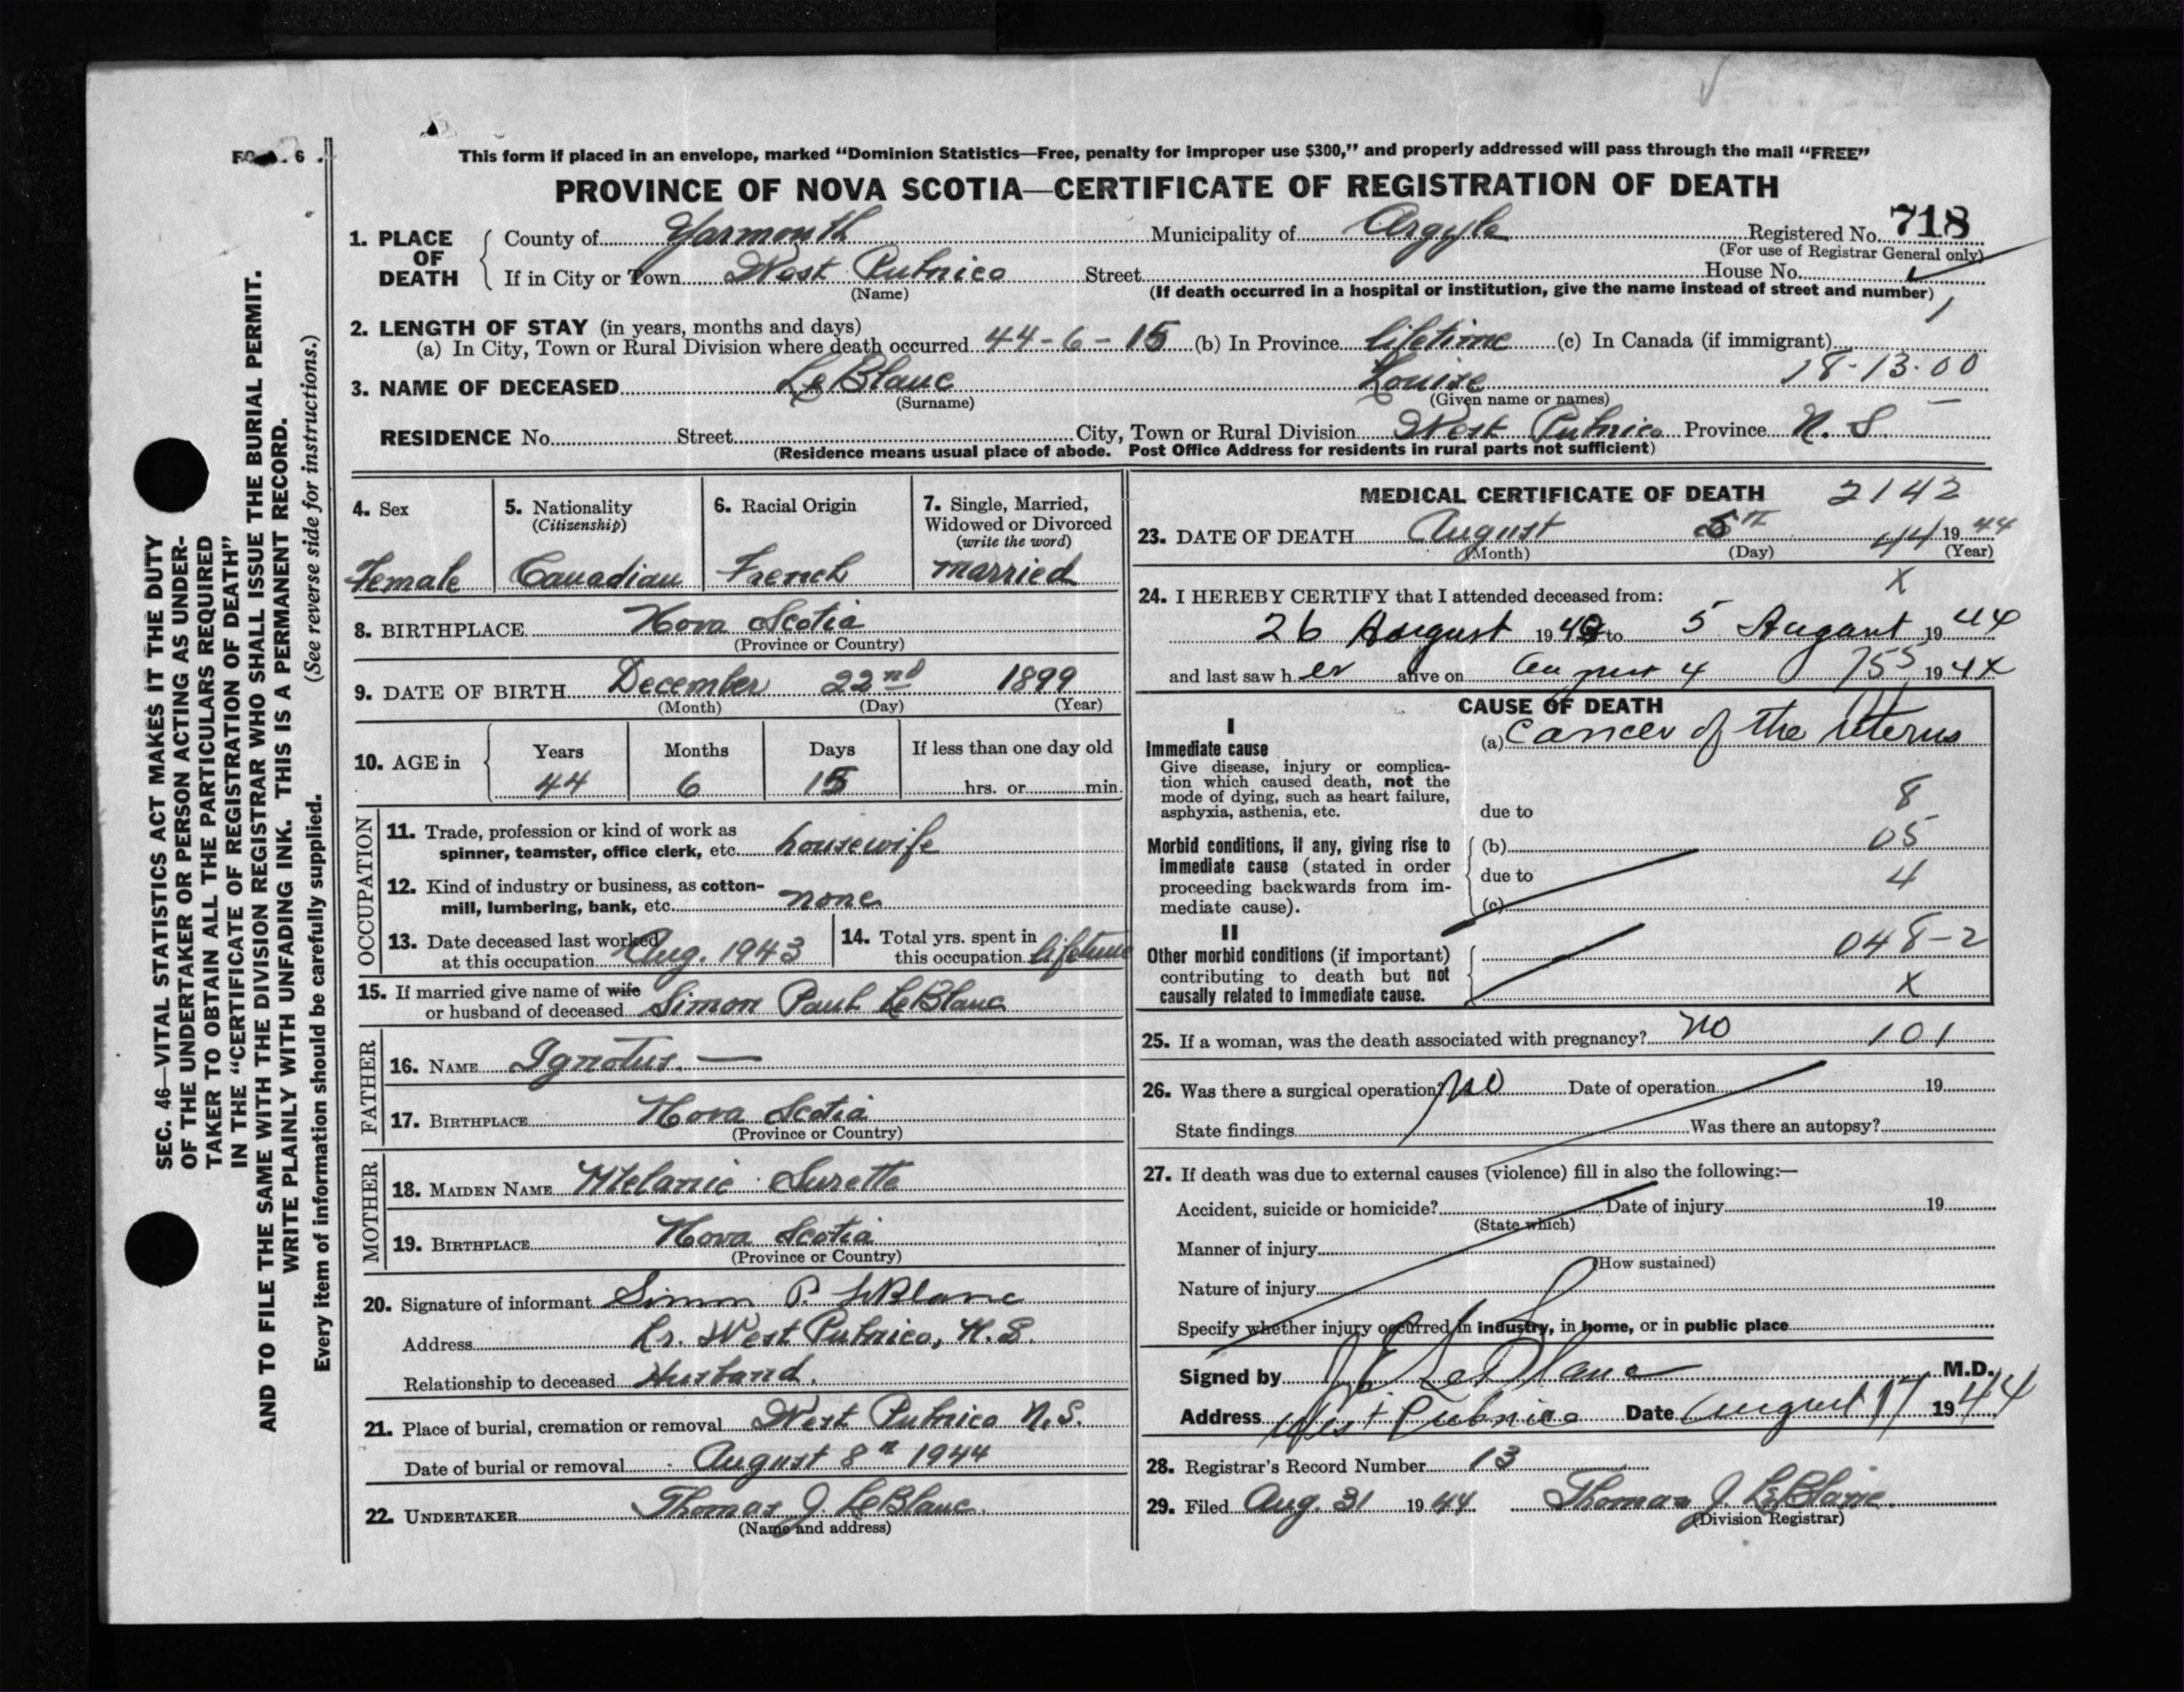 This form if placed in an envelope, marked “Dominion Statistics—Free, penalty for improper use $300,” and properly addressed will pass through the mail “FREE”
PROVINCE OF NOVA SCOTIA—CERTIFICATE OF REGISTRATION OF DEATH
1. PLACE OF DEATH
County of Yarmouth Municipality of Argyle Registered No. 718
(For use of Registrar General only)
If in City or Town West Pubnico Street House No.
(Name) (If death occurred in a hospital or institution, give the name instead of street and number)
2. LENGTH OF STAY (in years, months and days)
(a) In City, Town or Rural Division where death occurred 44-6-15 (b) In Province lifetime (c) In Canada (if immigrant)
18-13-00
3. NAME OF DECEASED LeBlanc Louise
(Surname) (Given name or names)
RESIDENCE No. Street City, Town or Rural Division West Pubnico Province N. S.
(Residence means usual place of abode. Post Office Address for residents in rural parts not sufficient)
4. Sex
Female
5. Nationality
(Citizenship)
Canadian
6. Racial Origin
French
7. Single, Married,
Widowed or Divorced
(write the word)
married
8. BIRTHPLACE Nova Scotia
(Province or Country)
9. DATE OF BIRTH December 22nd 1899
(Month) (Day) (Year)
10. AGE in
Years Months Days If less than one day old
44 6 15 hrs. or min.
OCCUPATION
11. Trade, profession or kind of work as
spinner, teamster, office clerk, etc. housewife
12. Kind of industry or business, as cotton-
mill, lumbering, bank, etc. none
13. Date deceased last worked
at this occupation Aug. 1943
14. Total yrs. spent in
this occupation lifetime
15. If married give name of wife
or husband of deceased Simon Paul LeBlanc
FATHER
16. NAME Ignotus. —
17. BIRTHPLACE Nova Scotia
(Province or Country)
MOTHER
18. MAIDEN NAME Melanie Surette
19. BIRTHPLACE Nova Scotia
(Province or Country)
20. Signature of informant Simon P. LeBlanc
Address Lr. West Pubnico, N.S.
Relationship to deceased Husband.
21. Place of burial, cremation or removal West Pubnico N.S.
Date of burial or removal August 8th 1944
22. UNDERTAKER Thomas J. LeBlanc.
(Name and address)
MEDICAL CERTIFICATE OF DEATH 2142
23. DATE OF DEATH August 5th 44 1944
(Month) (Day) (Year)
X
24. I HEREBY CERTIFY that I attended deceased from:
26 August 194 to 5 August 1944
and last saw h er alive on August 4 755 1944
CAUSE OF DEATH
I
Immediate cause
Give disease, injury or complica-
tion which caused death, not the
mode of dying, such as heart failure,
asphyxia, asthenia, etc.
(a) Cancer of the Uterus
8
due to
Morbid conditions, if any, giving rise to
immediate cause (stated in order
proceeding backwards from im-
mediate cause).
(b) 05
due to 4
(c)
II
Other morbid conditions (if important)
contributing to death but not
causally related to immediate cause.
048-2
X
25. If a woman, was the death associated with pregnancy? no 101
26. Was there a surgical operation? no Date of operation 19
State findings Was there an autopsy?
27. If death was due to external causes (violence) fill in also the following:—
Accident, suicide or homicide? Date of injury 19
(State which)
Manner of injury
(How sustained)
Nature of injury
Specify whether injury occurred in industry, in home, or in public place
Signed by LeBlanc M.D.
Address West Pubnico Date August 17 1944
28. Registrar's Record Number 13
29. Filed Aug. 31 1944 Thomas J. LeBlanc.
(Division Registrar)
SEC. 46—VITAL STATISTICS ACT MAKES IT THE DUTY
OF THE UNDERTAKER OR PERSON ACTING AS UNDER-
TAKER TO OBTAIN ALL THE PARTICULARS REQUIRED
IN THE “CERTIFICATE OF REGISTRATION OF DEATH”
AND TO FILE THE SAME WITH THE DIVISION REGISTRAR WHO SHALL ISSUE THE BURIAL PERMIT.
WRITE PLAINLY WITH UNFADING INK. THIS IS A PERMANENT RECORD.
Every item of information should be carefully supplied. (See reverse side for instructions.)